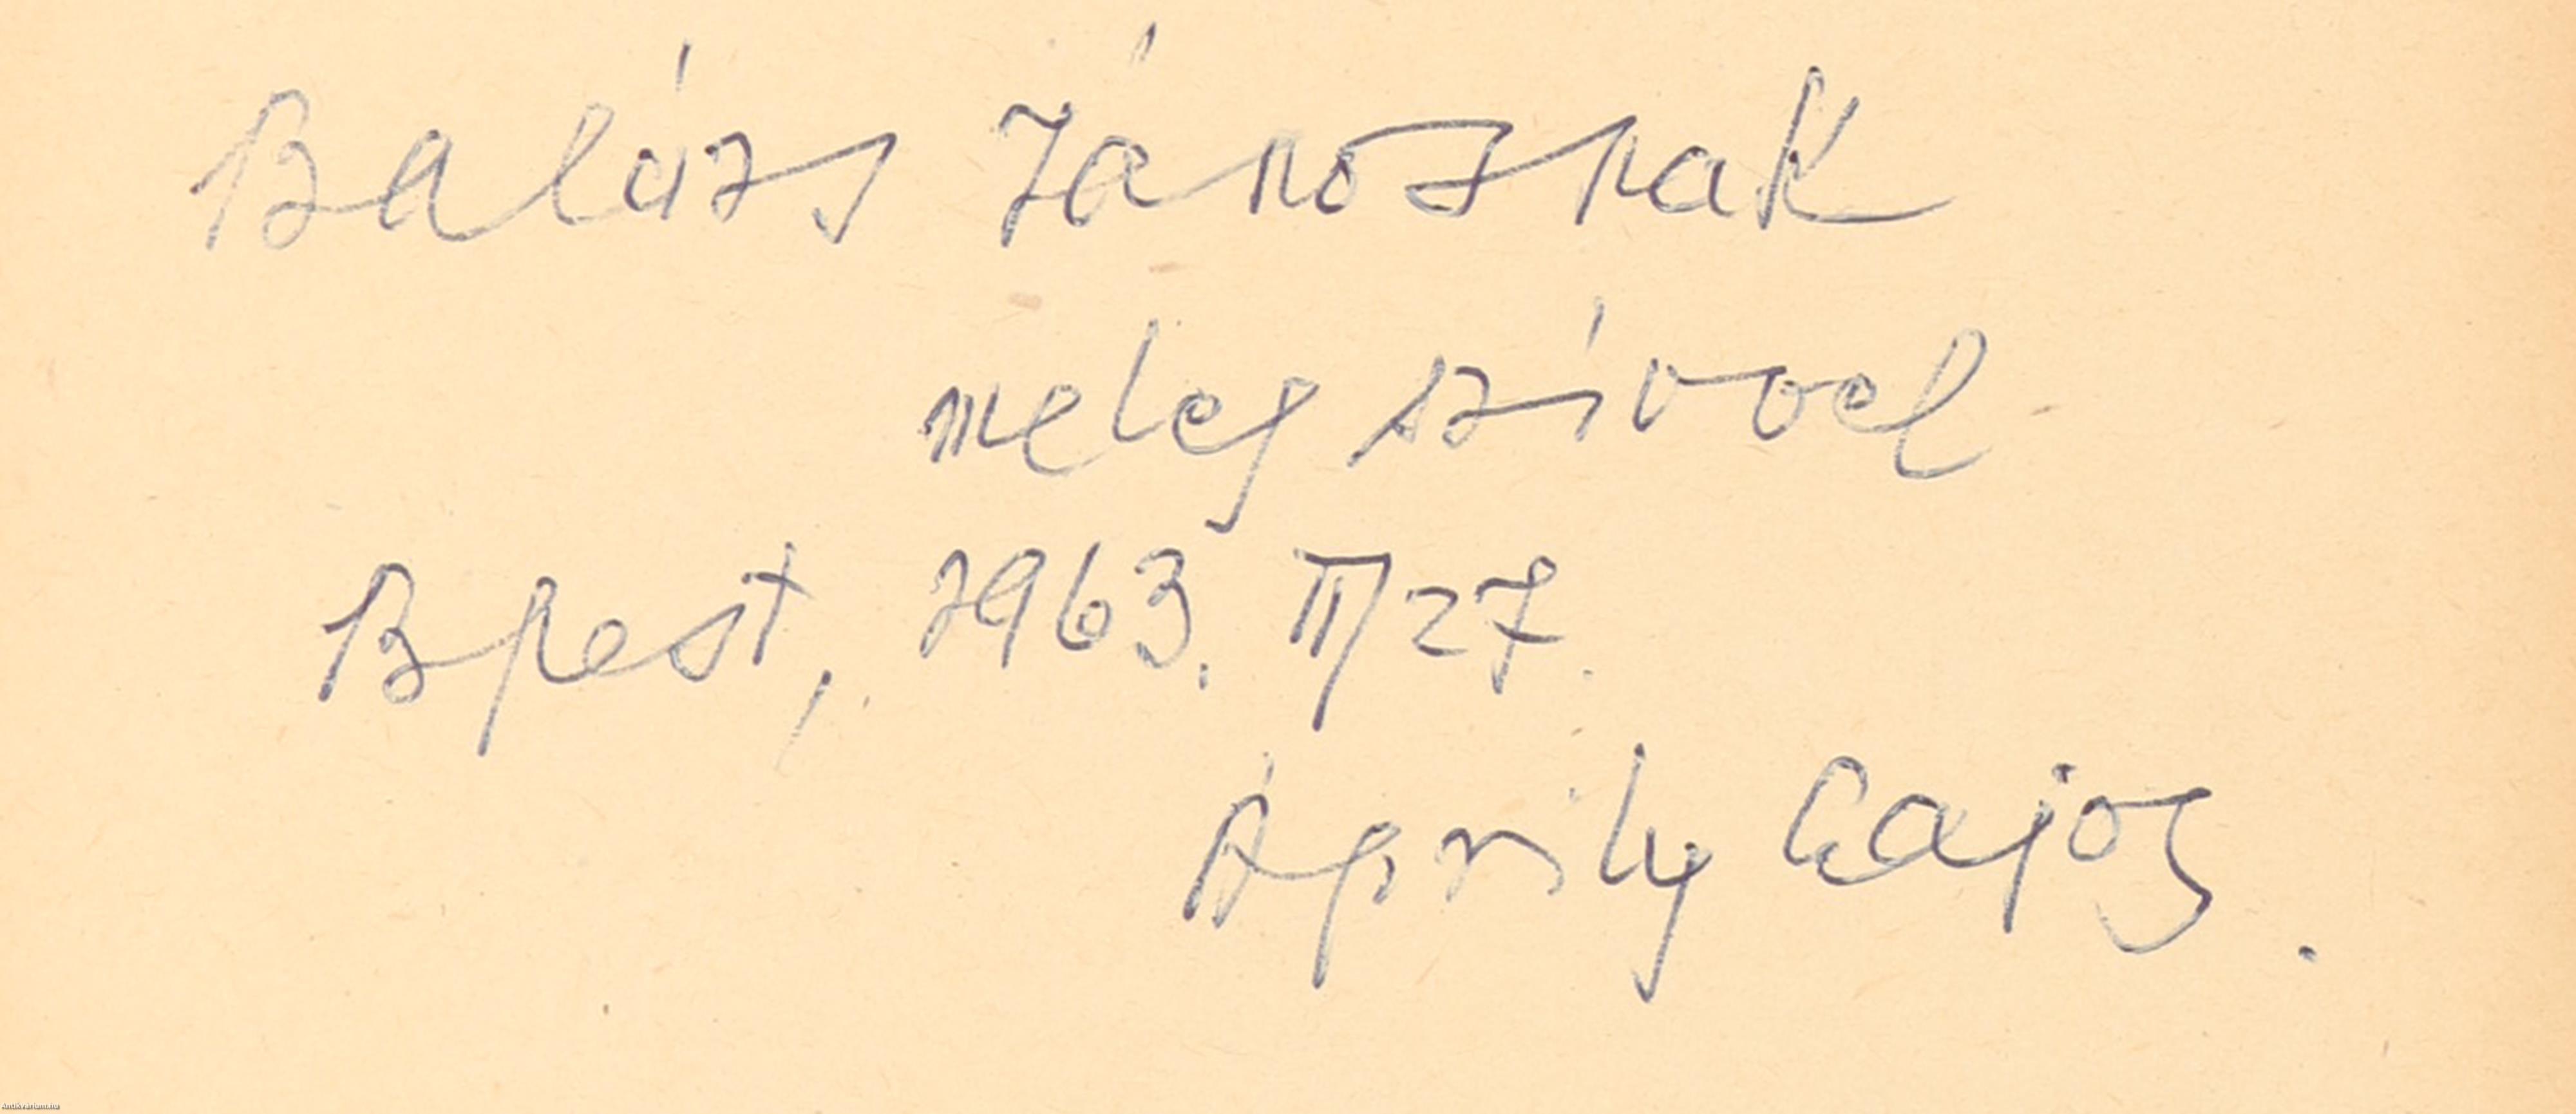 Balázs Jánosnak
meleg szívvel
Bpest, 1963. II/27.
Áprily Lajos.
Antikvarium.hu